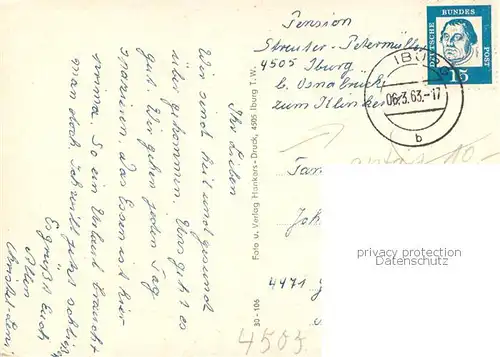 Pension
Streuter-Petermüller
4505 Iburg
b. Osnabrück
zum Klinken
DEUTSCHE BUNDES POST
15
IBURG
06.3.63.-17
b
Ihr Lieben
Wir sind heil und gesund
über gekommen. Uns geht es
gut. Wir gehen jeden Tag
spazieren. Das Essen ist hier
prima. So ein Urlaub braucht
man doch. Ich will jetzt schließen
Es grüßt Euch
Allen
Foto u. Verlag Hankers-Druck, 4505 Iburg T.W.
30-106
Fam
Joh
4471
4505
privacy protection
Datenschutz